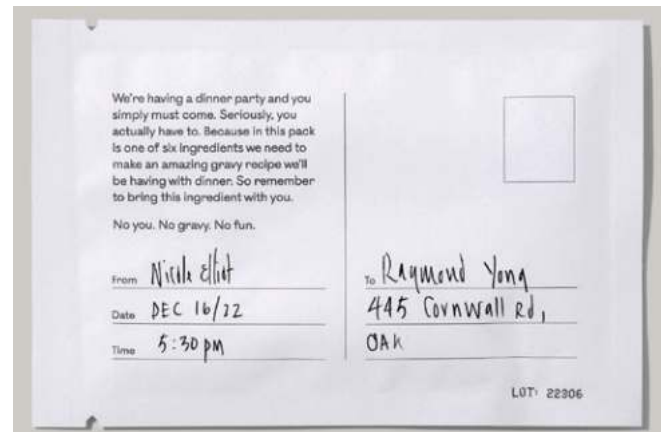 We're having a dinner party and you
simply must come. Seriously, you
actually have to. Because in this pack
is one of six ingredients we need to
make an amazing gravy recipe we'll
be having with dinner. So remember
to bring this ingredient with you.
No you. No gravy. No fun.
From Nicole Elliot
Date DEC 16/22
Time 5:30 PM
To Raymond Yong
445 Cornwall Rd,
OAK
LOT: 22306